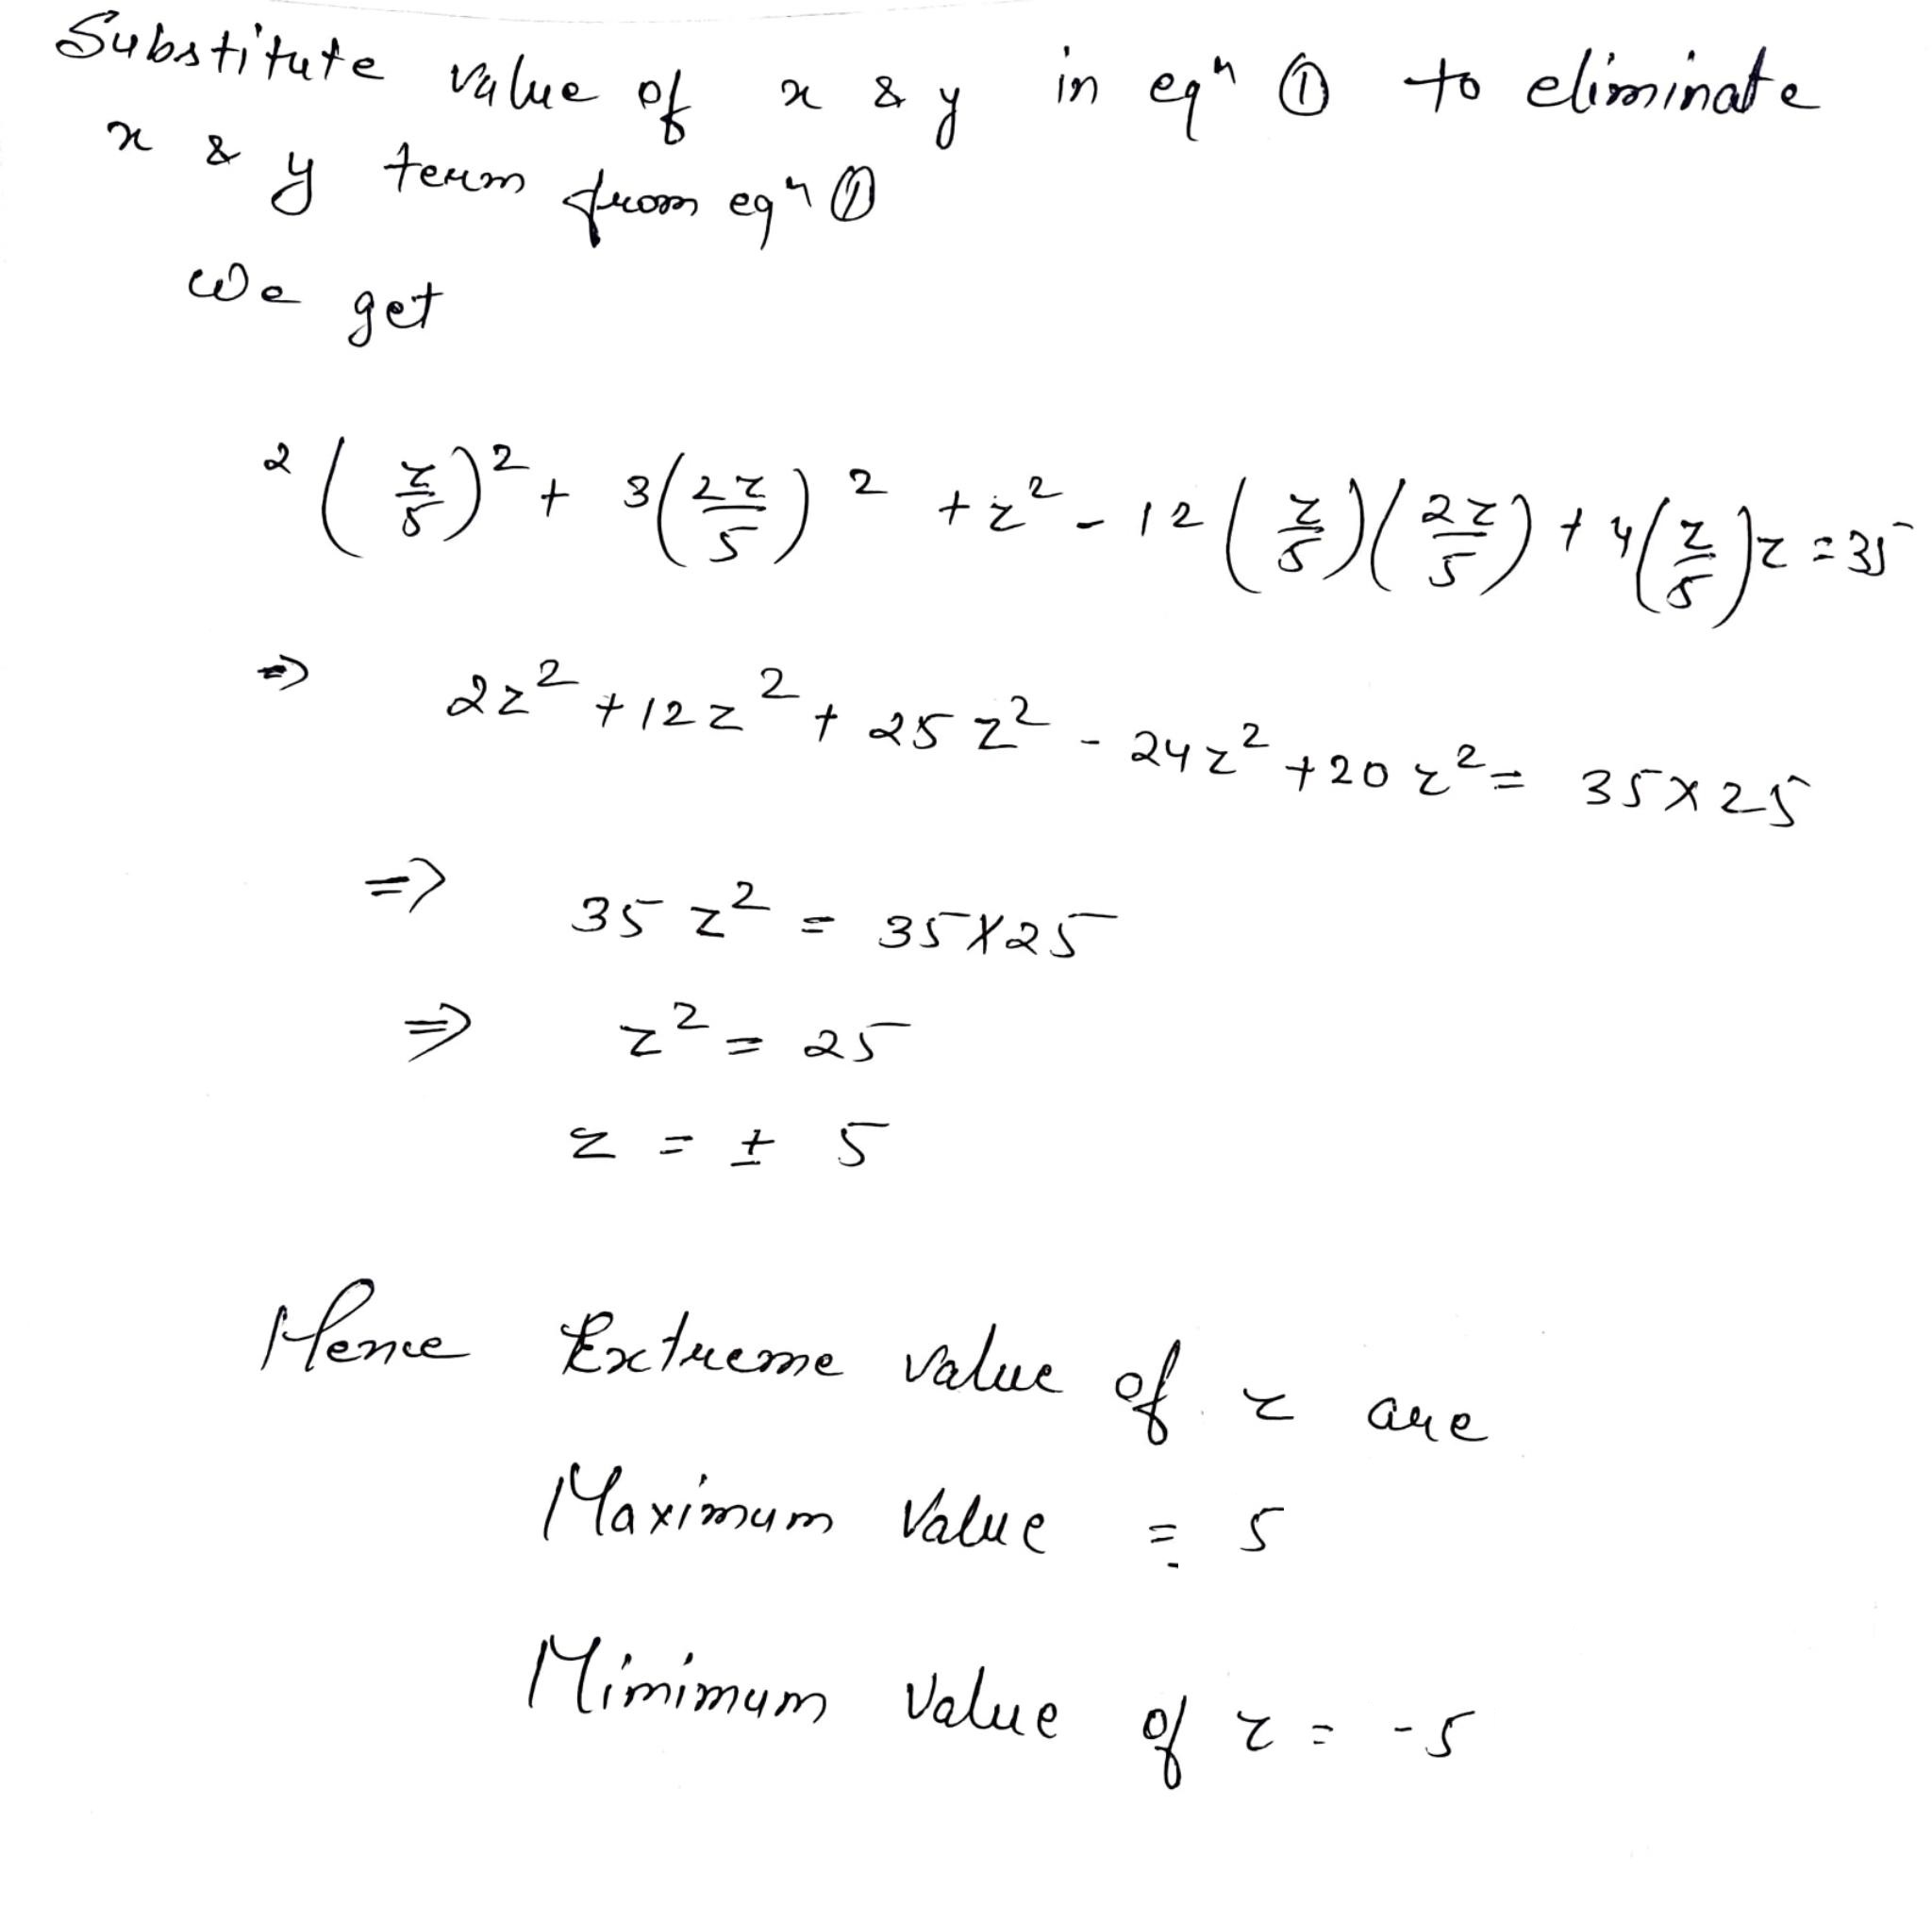 Substitute value of x & y in eqⁿ ① to eliminate
x & y term from eqⁿ ①
We get
2(z/5)² + 3(2z/5)² + z² - 12(z/5)(2z/5) + 4(z/5)z = 35
⇒ 2z² + 12z² + 25z² - 24z² + 20z² = 35×25
⇒ 35z² = 35×25
⇒ z² = 25
z = ± 5
Hence Extreme value of z are
Maximum Value = 5
Minimum Value of z = -5